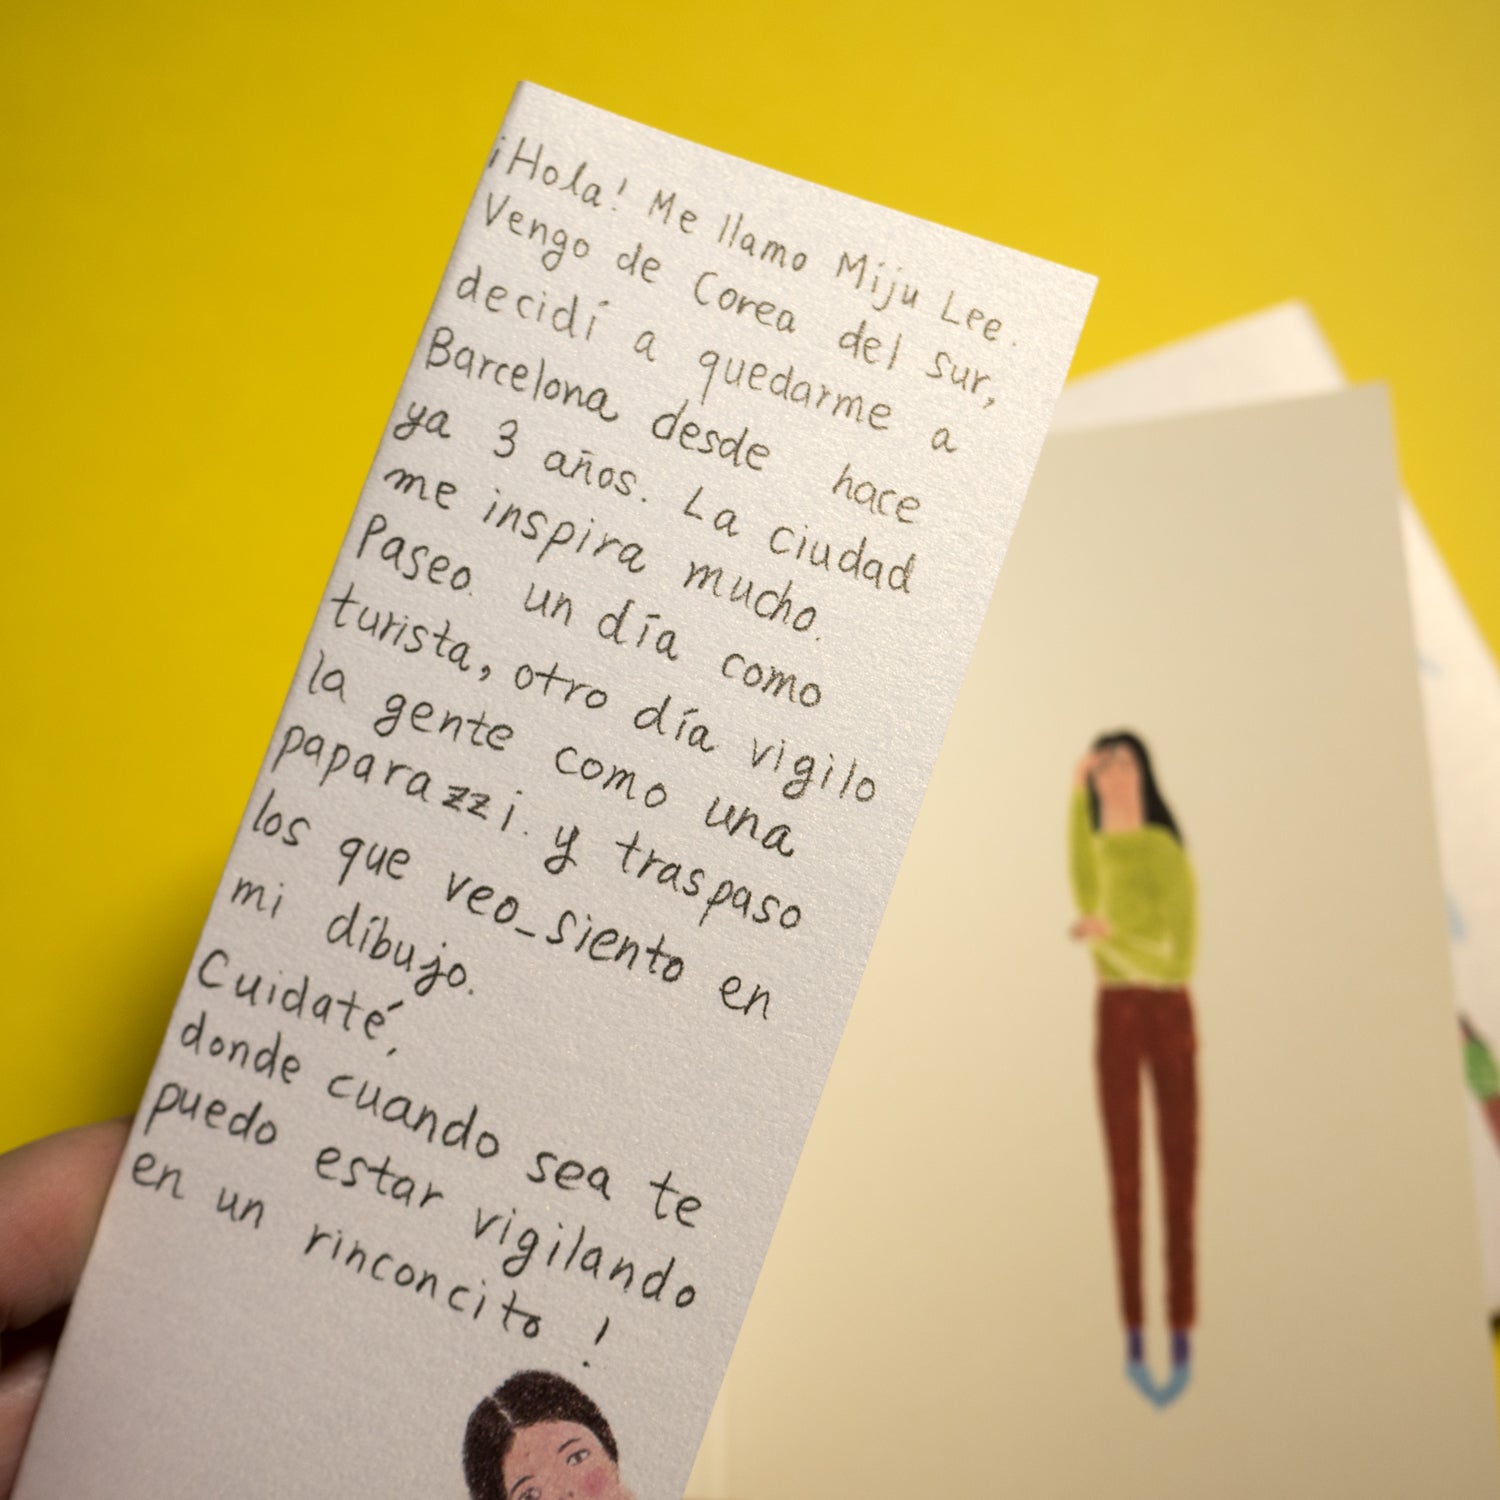 ¡Hola! Me llamo Miju Lee.
Vengo de Corea del sur,
decidí a quedarme a
Barcelona desde hace
ya 3 años. La ciudad
me inspira mucho.
Paseo. un día como
turista, otro día vigilo
la gente como una
paparazzi. y traspaso
los que veo_siento en
mi díbujo.
Cuidaté,
donde cuando sea te
puedo estar vigilando
en un rinconcito !